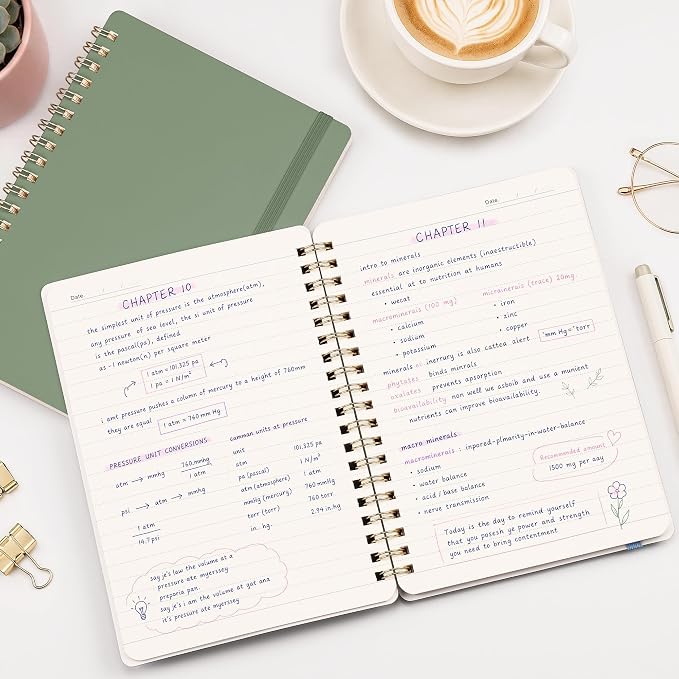 Date
CHAPTER 10
the simplest unit of pressure is the atmosphere(atm),
any pressure of sea level, the si unit of pressure
is the pascal(pa), defined
as - 1 newton(n) per square meter
1 atm = 101,325 pa
1 pa = 1 N/m²
i amt pressure pushes a column of mercury to a height of 760mm
they are equal
1 atm = 760 mm Hg
PRESSURE UNIT CONVERSIONS
atm → mmhg 760 mmhg
1 atm
psi → atm → mmhg
1 atm
14.7 psi
camman units at pressure
unit 101,325 pa
atm 1 N/m²
pa (pascal) 1 atm
atm (atmosphere) 760 mmHg
mmHg (mercury) 760 torr
torr (torr) 2.94 in.hg
in. hg.
say je's law the volume at a
pressure ate myerssey
preporia pan.
say je's i am the volume at got ana
it's pressure ate myerssey
Date
CHAPTER 11
intro to minerals
minerals are inorganic elements (inaestructible)
essential at to nutrition at humans
• wecat
macrominerals (100 mg)
• calcium
• sodium
• potassium
micrainerais (trace) 20mg
• iron
• zinc
• copper
"mm Hg=" torr
minerals n: inerrury is also cattea alert
phytases binds minrals
oxalates prevents apsorption
bioavailability non well we asboib and use a munient
nutrients can improve bioavailability.
macro minerals
macrominerors : inpored-plmarity-in-water-balance
• sodium
• water balance
• acid / base balance
• nerve transmission
Recommended amount
1500 mg per aay
Today is the day to remind yourself
that you posesh ye power and strength
you need to bring contentment